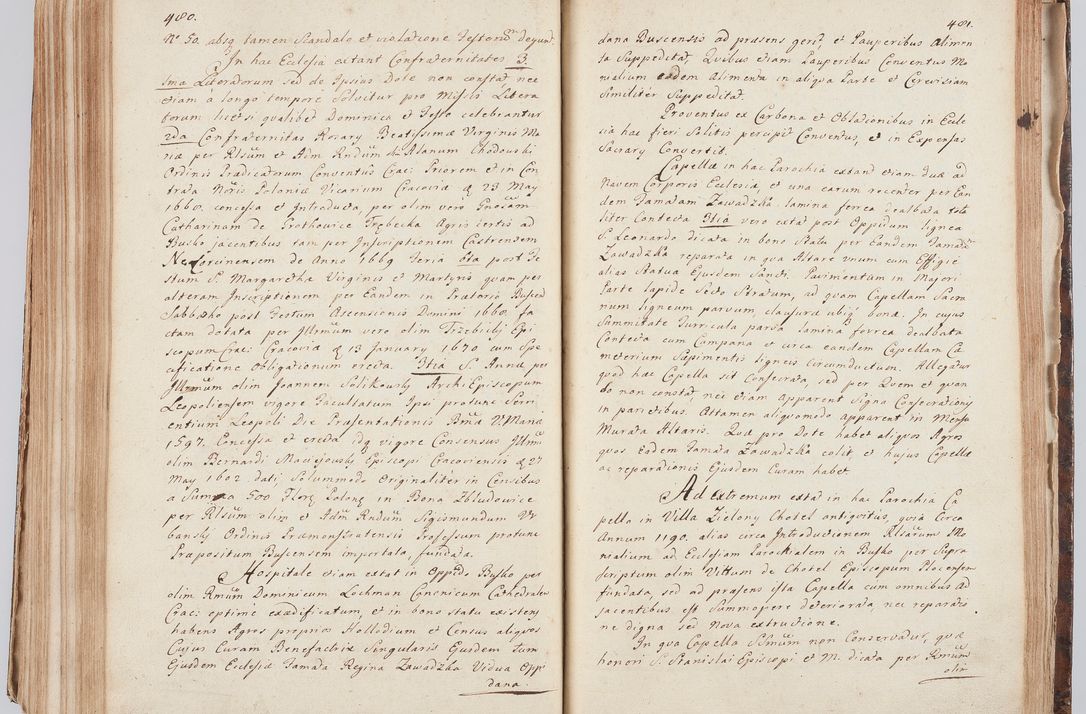 480.
No 50. absq tamen Scandalo et violatione Festorũ degunt.
In hac Ecclesia extant Confraternitates 3.
1ma Literatorum sed de Ipsius Dote non constat nec
etiam à longo tempore Solvitur pro Missis Litera
torum licet si qualibet Dominica et Festo celebrantur
2da Confraternitas Rosary Beatissimæ Virginis Ma
riæ per Rlsũm et Adm Rndũm Alanum Chodowski
Ordinis Prædicatorum Conventus Crac: Priorem et in Con
trata Nris Poloniæ Vicarium Cracoviæ d 23 May
1660. concessa et Introducta, per olim vero Gnosam
Catharinam de Frothowice Trębecka Agris certis ad
Busko jacentibus tam per Inscriptionem Castrensem
Neo Corcinensem de Anno 1669 Feria 6ta post Fe
stum S. Margarethæ Virginis et Martyris quam per
alteram Inscriptionem per Eandem in Prætorio Buscen
Sabbatho post Festum Ascensionis Domini 1660. fa
ctam dotata per Illrmũm vero olim Trzebicky Epi
scopum Crac: Cracoviæ d 13 January 1670 cum Spe
cificatione Obligationum erecta. 3tia S. Annæ per
Illrmũm olim Joannem Solikowsky Archi Episcopum
Leopoliensem vigore Facultatum Ipsi protunc Servi
entium Leopoli Die Præsentationis Bmæ V. Mariæ
1597. Concessa et erecta idq vigore Consensus Illmi
olim Bernardi Maciejowsky Episcopi Cracoviensis d 27
May 1602. dati, Solummodo Originaliter in Censibus
a Summa 500 Flor: Polon: in Bona Zbludowice
per Rlsũm olim et Adm Rndum Sigismundum Ur
bansky Ordinis Præmonstratensis Professum protunc
Præpositum Buscensem importata, fundata.
Hospitale etiam extat in Oppido Busko per
olim Rmũm Dominicum Lochman Canonicum Cathedralem
Crac: optimè exædificatum, et in bono statu existens
habens Agros proprios Hollodium et Census aliquos
Cujus Curam Benefactrix Singularis Ejusdem tum
Ejusdem Ecclesiæ Famata Regina Zawadzka Vidua Opp
dana
481.
dana Buscensis ad præsens gerit, et Pauperibus Alimen
ta Suppeditat. Quibus etiam Pauperibus Conventus Mo
nialium eadem Alimenta in aliqua Parte et Cerevisiam
Similiter Suppeditat.
Proventus ex Carbona et Oblationibus in Eccle
sia hac fieri Solitis percipit Conventus, et in Expensas
Sacrary Convertit.
Capellæ in hac Parochia extant etiam duæ ad
Navem Corporis Ecclesiæ, et una earum recenter per Ean
dem Famatam Zawadzka lamina ferrea dealbata tota
liter Contecta 3tia vero extat post Oppidum lignea
S. Leonardo dicata in bono Statu per Eandem Famatã
Zawadzka reparata in qua Altare unum cum Effigie
alias Statua Ejusdem Sancti. Pavimentum in Majori
Parte lapide Secto Stratum, ad quam Capellam Sacra
rium ligneum parvum, clausuræ ubiq bonæ. In cujus
Summitate Turricula parva lamina ferrea dealbata
Contecta cum Campana et circa eandem Capellam Cæ
meterium Sapimentis ligneis circumductum. Allegatur
quod hæc Capella sit Consecrata, sed per Quem et quan
do non constat, nec etiam apparent Signa Consecrationis
in parietibus. Attamen aliquomodo apparent in Mensa
Murata Altaris. Quæ pro Dote habet aliquos Agros
quos Eadem Famata Zawadzka colit, et hujus Capellæ
ac reparationis Ejusdem Curam habet
Ad extremum extat in hac Parochia Ca
pella in Villa Zielony Chotel antiquitus, quia Circa
Annum 1190. alias circa Introductionem Rlsarũm Mo
nialium ad Ecclesiam Parochialem in Busko per Supra
scriptum olim Vittum de Chotel Episcopum Plocensem
fundata, sed ad præsens ista Capella cum omnibus Ad
jacentibus est Summopere deteriorata, nec reparatio
ne digna sed Nova extructione.
In qua Capella SSmũm non Conservatur, quæ
honori S. Stanislai Episcopi et M. dicata per Rmũm
olim